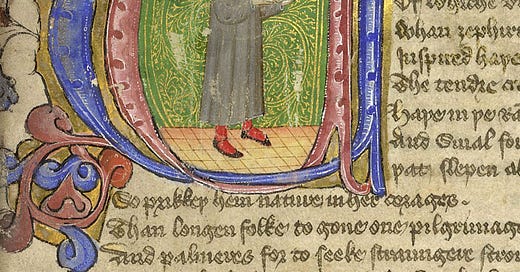 Of whiche
Whan zephir
Inspired haþe
The tendre cr
Haþe in þe ra
And Smal fo
þat slepen al
So prikkeþ hem nature in her corages.
Than longen folke to gone one pilgrimag
And palmeres for to seeke straungere stron